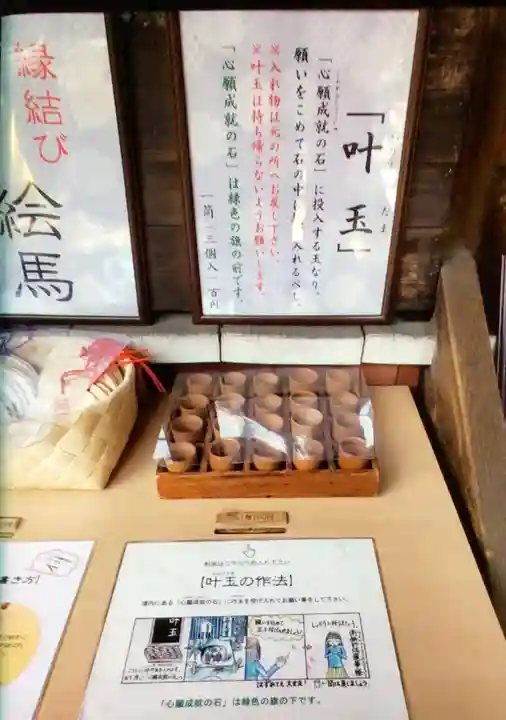 縁結び
絵馬
「叶 玉」
たま
「心願成就の石」に投入する玉なり。
願いをこめて石の中に 入れるべし。
※入れ物は元の所へお戻し下さい。
※叶玉は持ち帰らないようお願いします。
一筒 三個入 百円
「心願成就の石」は緑色の旗の前です。
き方】
【叶玉の作法】
境内にある「心願成就の石」に叶玉を投げ入れてお願い事をして下さい。
叶玉
はずれても大丈夫!
「心願成就の石」は緑色の旗の下です。